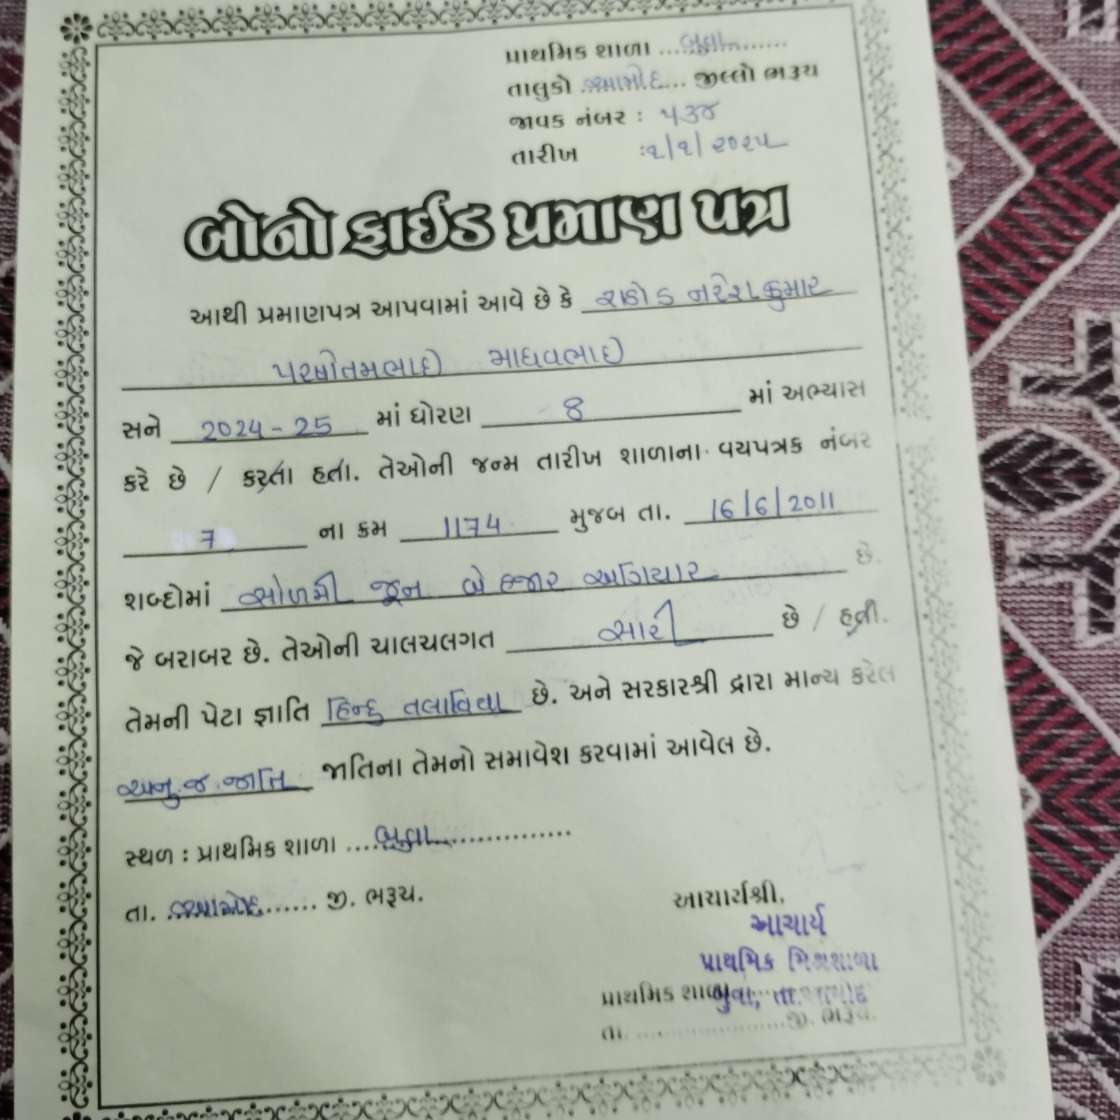 પ્રાથમિક શાળા ....બુવા.........
તાલુકો .આમોદ.... જીલ્લો ભરૂચ
જાવક નંબર : ૫૩૪
તારીખ :૨/૧/૨૦૨૫
બોનોફાઈડ પ્રમાણ પત્ર
આથી પ્રમાણપત્ર આપવામાં આવે છે કે રાઠોડ નરેશકુમાર
પરષોતમભાઇ માધવભાઇ
સને 2024-25 માં ધોરણ 8 માં અભ્યાસ
કરે છે / કરતા હતા. તેઓની જન્મ તારીખ શાળાના વયપત્રક નંબર
7 ના ક્રમ 1174 મુજબ તા. 16/6/2011
શબ્દોમાં સોળમી જૂન બે હજાર અગિયાર છે.
જે બરાબર છે. તેઓની ચાલચલગત સારી છે / હતી.
તેમની પેટા જ્ઞાતિ હિન્દુ તલાવિયા છે. અને સરકારશ્રી દ્રારા માન્ય કરેલ
અનુ.જ.જાતિ જાતિના તેમનો સમાવેશ કરવામાં આવેલ છે.
સ્થળ : પ્રાથમિક શાળા ....બુવા................
તા. .આમોદ....... જી. ભરૂચ.
આચાર્યશ્રી.
આચાર્ય
પ્રાથમિક મિશ્રશાળા
બુવા, તા. આમોદ
પ્રાથમિક શાળા
તા. .....................જી. ભરૂચ.